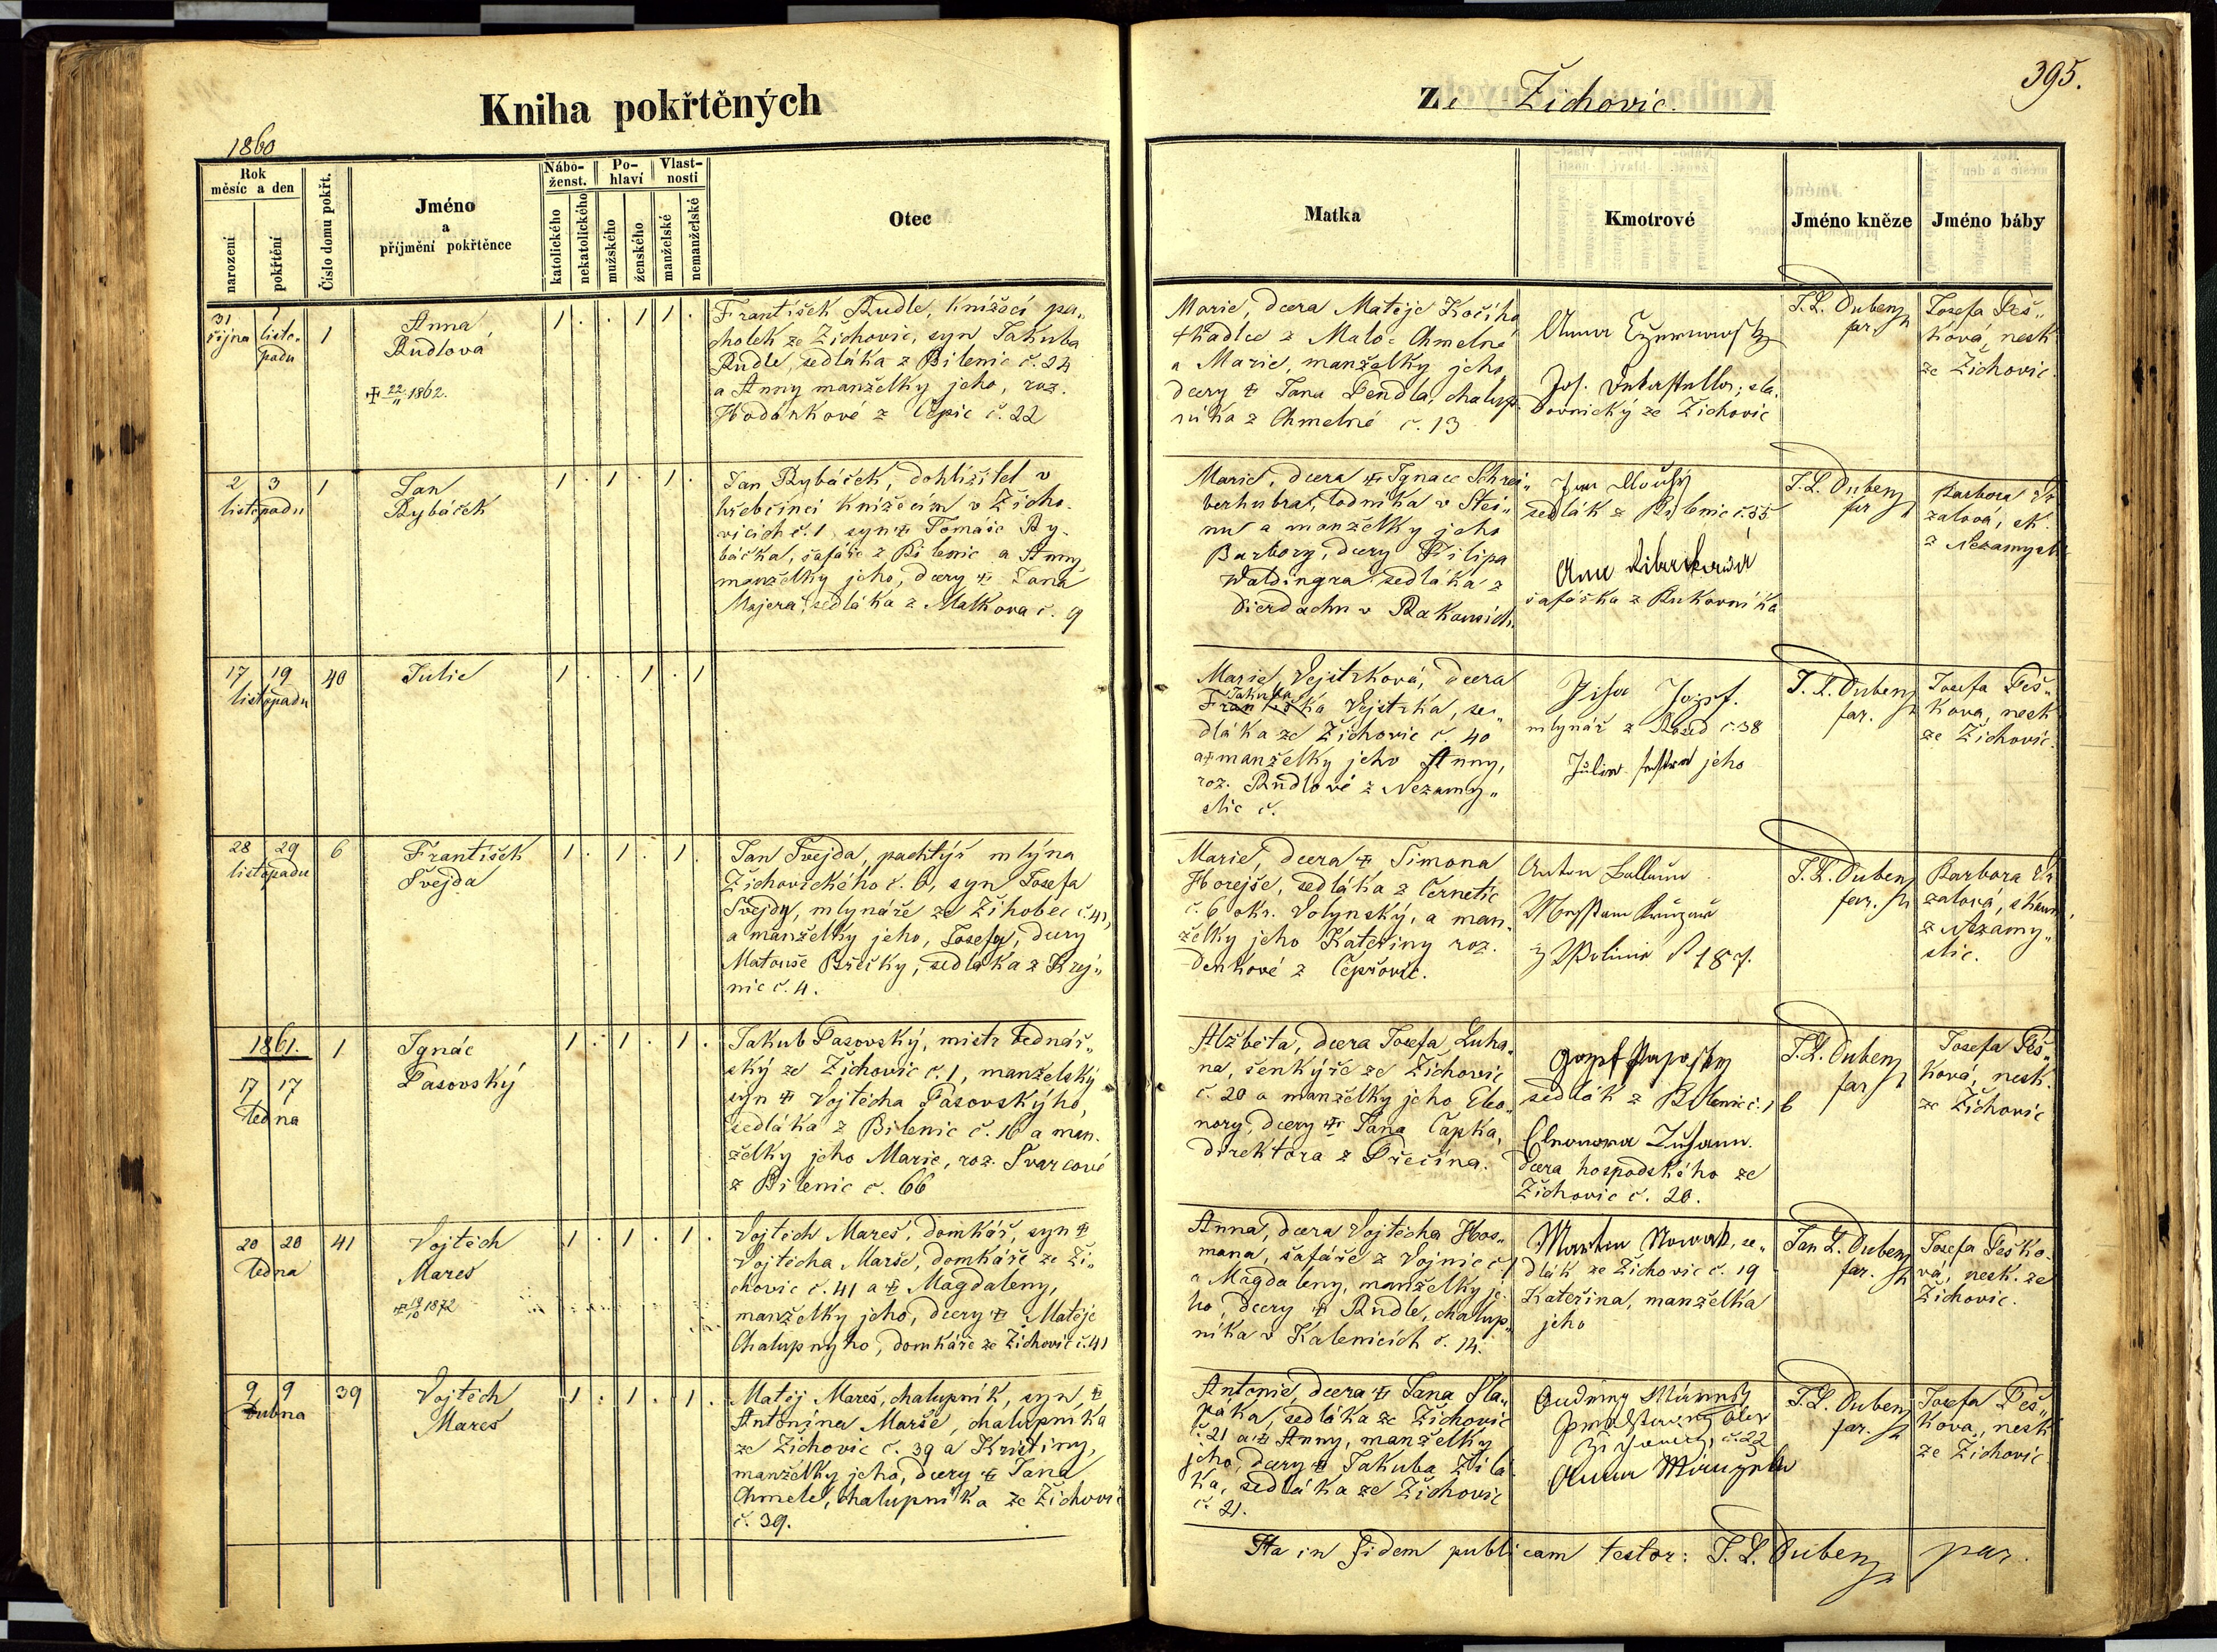 Kniha pokřtěných
ze Žichovic.
395.
1860
Rok
měsíc a den
narození
pokřtění
Číslo domu pokřt.
Jméno
a
příjmění pokřtěnce
Nábo-
ženst.
katolického
nekatolického
Po-
hlaví
mužského
ženského
Vlast-
nosti
manželské
nemanželské
Otec
Matka
Kmotrové
Jméno kněze
Jméno báby
31 1
října listo-
padu
1
Anna
Rudlová
✠ 22/11 1862.
1 . . 1 1 .
František Rudle, knížecí pa-
cholek ze Žichovic, syn Jakuba
Rudle, sedláka z Bilenic č. 24
a Anny manželky jeho, roz.
Hodánkové z Čepic č. 22
Marie, dcera Matěje Kočího
tkadlce z Malo-Chmelné
a Marie, manželky jeho,
dcery ✠ Jana Pendla, chalup-
níka z Chmelné č. 13
Anna
Jos.
dovnický ze Žichovic
J. L. Dubenz
far.
Josefa Peš-
ková, nesk.
ze Žichovic.
2 3
listopadu
1
Jan
Rybáček
1 . 1 . 1 .
Jan Rybáček, dohližitel v
hřebčinci knížecím v Žicho-
vicích č. 1 syn ✠ Tomáše Ry-
báčka, šafáře z Bilenic a Anny
manželky jeho, dcery ✠ Jana
Majera, sedláka z Malkova č. 9
Marie, dcera ✠ Ignace Schrei-
berhubra, lodníka v Stei-
nu a manželky jeho
Barbory, dcery Filipa
Waldingra sedláka z
v Rakousích.
Jan
sedlák z Bilenic č. 35
Anna
šafářka z Bukovníka
J. L. Dubenz
far
Barbora Vr-
zalová, sk.
z Nezamysl.
17 19
listopadu
40
Julie
1 . . 1 . 1
Marie Vejstrková, dcera
Jakuba
Františka Vejstrka, se-
dláka ze Žichovic č. 40
a ✠ manželky jeho Anny,
roz. Rudlové z Nezamy-
slic č.
Josef.
mlynář z Rozsed č. 38
jeho
J. L. Dubenz
far.
Josefa Peš-
kova, nesk.
ze Žichovic.
28 29
listopadu
6
František
Švejda
1 . 1 . 1 .
Jan Švejda, pachtýř mlýna
Žichovického č. 6, syn Josefa
Švejdy, mlynáře ze Žihobec č. 41,
a manželky jeho, Josefy, dcery
Matouše Břečky, sedláka z Krej-
nic č. 4.
Marie, dcera ✠ Šimona
Horejše, sedláka z Černětic
č. 6 okr. Volynský, a man-
želky jeho Kateřiny roz.
Denkové z Čepřovic.
Anton
187.
J. L. Dubenz
far.
Barbora Vr-
zalová, zkoum.
z Nezamy-
slic.
1861.
17 17
ledna
1
Ignác
Pasovský
1 . 1 . 1 .
Jakub Pasovský, mistr bednář-
ský ze Žichovic č. 1, manželský
syn ✠ Vojtěcha Pasovskýho,
sedláka z Bilenic č. 16 a man-
želky jeho Marie, roz. Švarcové
z Bilenic č. 66
Alžběta, dcera Josefa Luha-
na, šenkýře ze Žichovic
č. 20 a manželky jeho Eleo-
nory, dcery ✠ Jana Čapka,
direktora z Přečína.
Josef Pasovský
sedlák z Bilenic č. 16
Eleonora Luhann.
dcera hospodského ze
Žichovic č. 20.
J. L. Dubenz
far
Josefa Peš-
ková, nesk.
ze Žichovic
20 20
ledna
41
Vojtěch
Mareš
✠ 19/10 1872
1 . 1 . 1 .
Vojtěch Mareš, domkář, syn ✠
Vojtěcha Marše, domkáře ze Ži-
chovic č. 41 a ✠ Magdaleny,
manželky jeho, dcery ✠ Matěje
Chalupnýho, domkáře ze Žichovic č. 41
Anna, dcera Vojtěcha Hos-
mana, šafáře z Vojnic č. 1
a Magdaleny, manželky je-
ho, dcery ✠ Rudle, chalup-
níka v Kalenicích č. 14.
Martin Nowak, se-
dlák ze Žichovic č. 19
Kateřina, manželka
jeho
Jan L. Dubenz
far.
Josefa Peško-
vá, nesk. ze
Žichovic.
9 9
dubna
39
Vojtěch
Mareš
1 . 1 . 1 .
Matěj Mareš, chalupník, syn ✠
Antonína Marše, chalupníka
ze Žichovic č. 39 a Kristiny,
manželky jeho, dcery ✠ Jana
Chmele, chalupníka ze Žichovic
č. 39.
Antonie, dcera ✠ Jana Sla-
páka, sedláka ze Žichovic
č. 21 a ✠ Anny, manželky
jeho, dcery ✠ Jakuba Žilá-
ka, sedláka ze Žichovic
č. 21.
č. 22
Anna
J. L. Dubenz
far.
Josefa Peš-
kova, nesk.
ze Žichovic.
Ita in fidem publicam testor: J. L. Dubenz par.